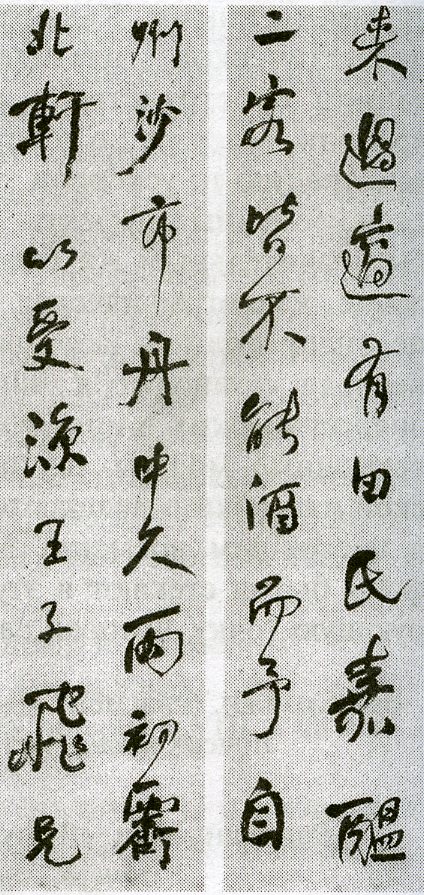 來過適有田氏嘉醖
二客皆不能酒而予自
州沙市舟中久雨初霽
北軒以受涼王子飛兄